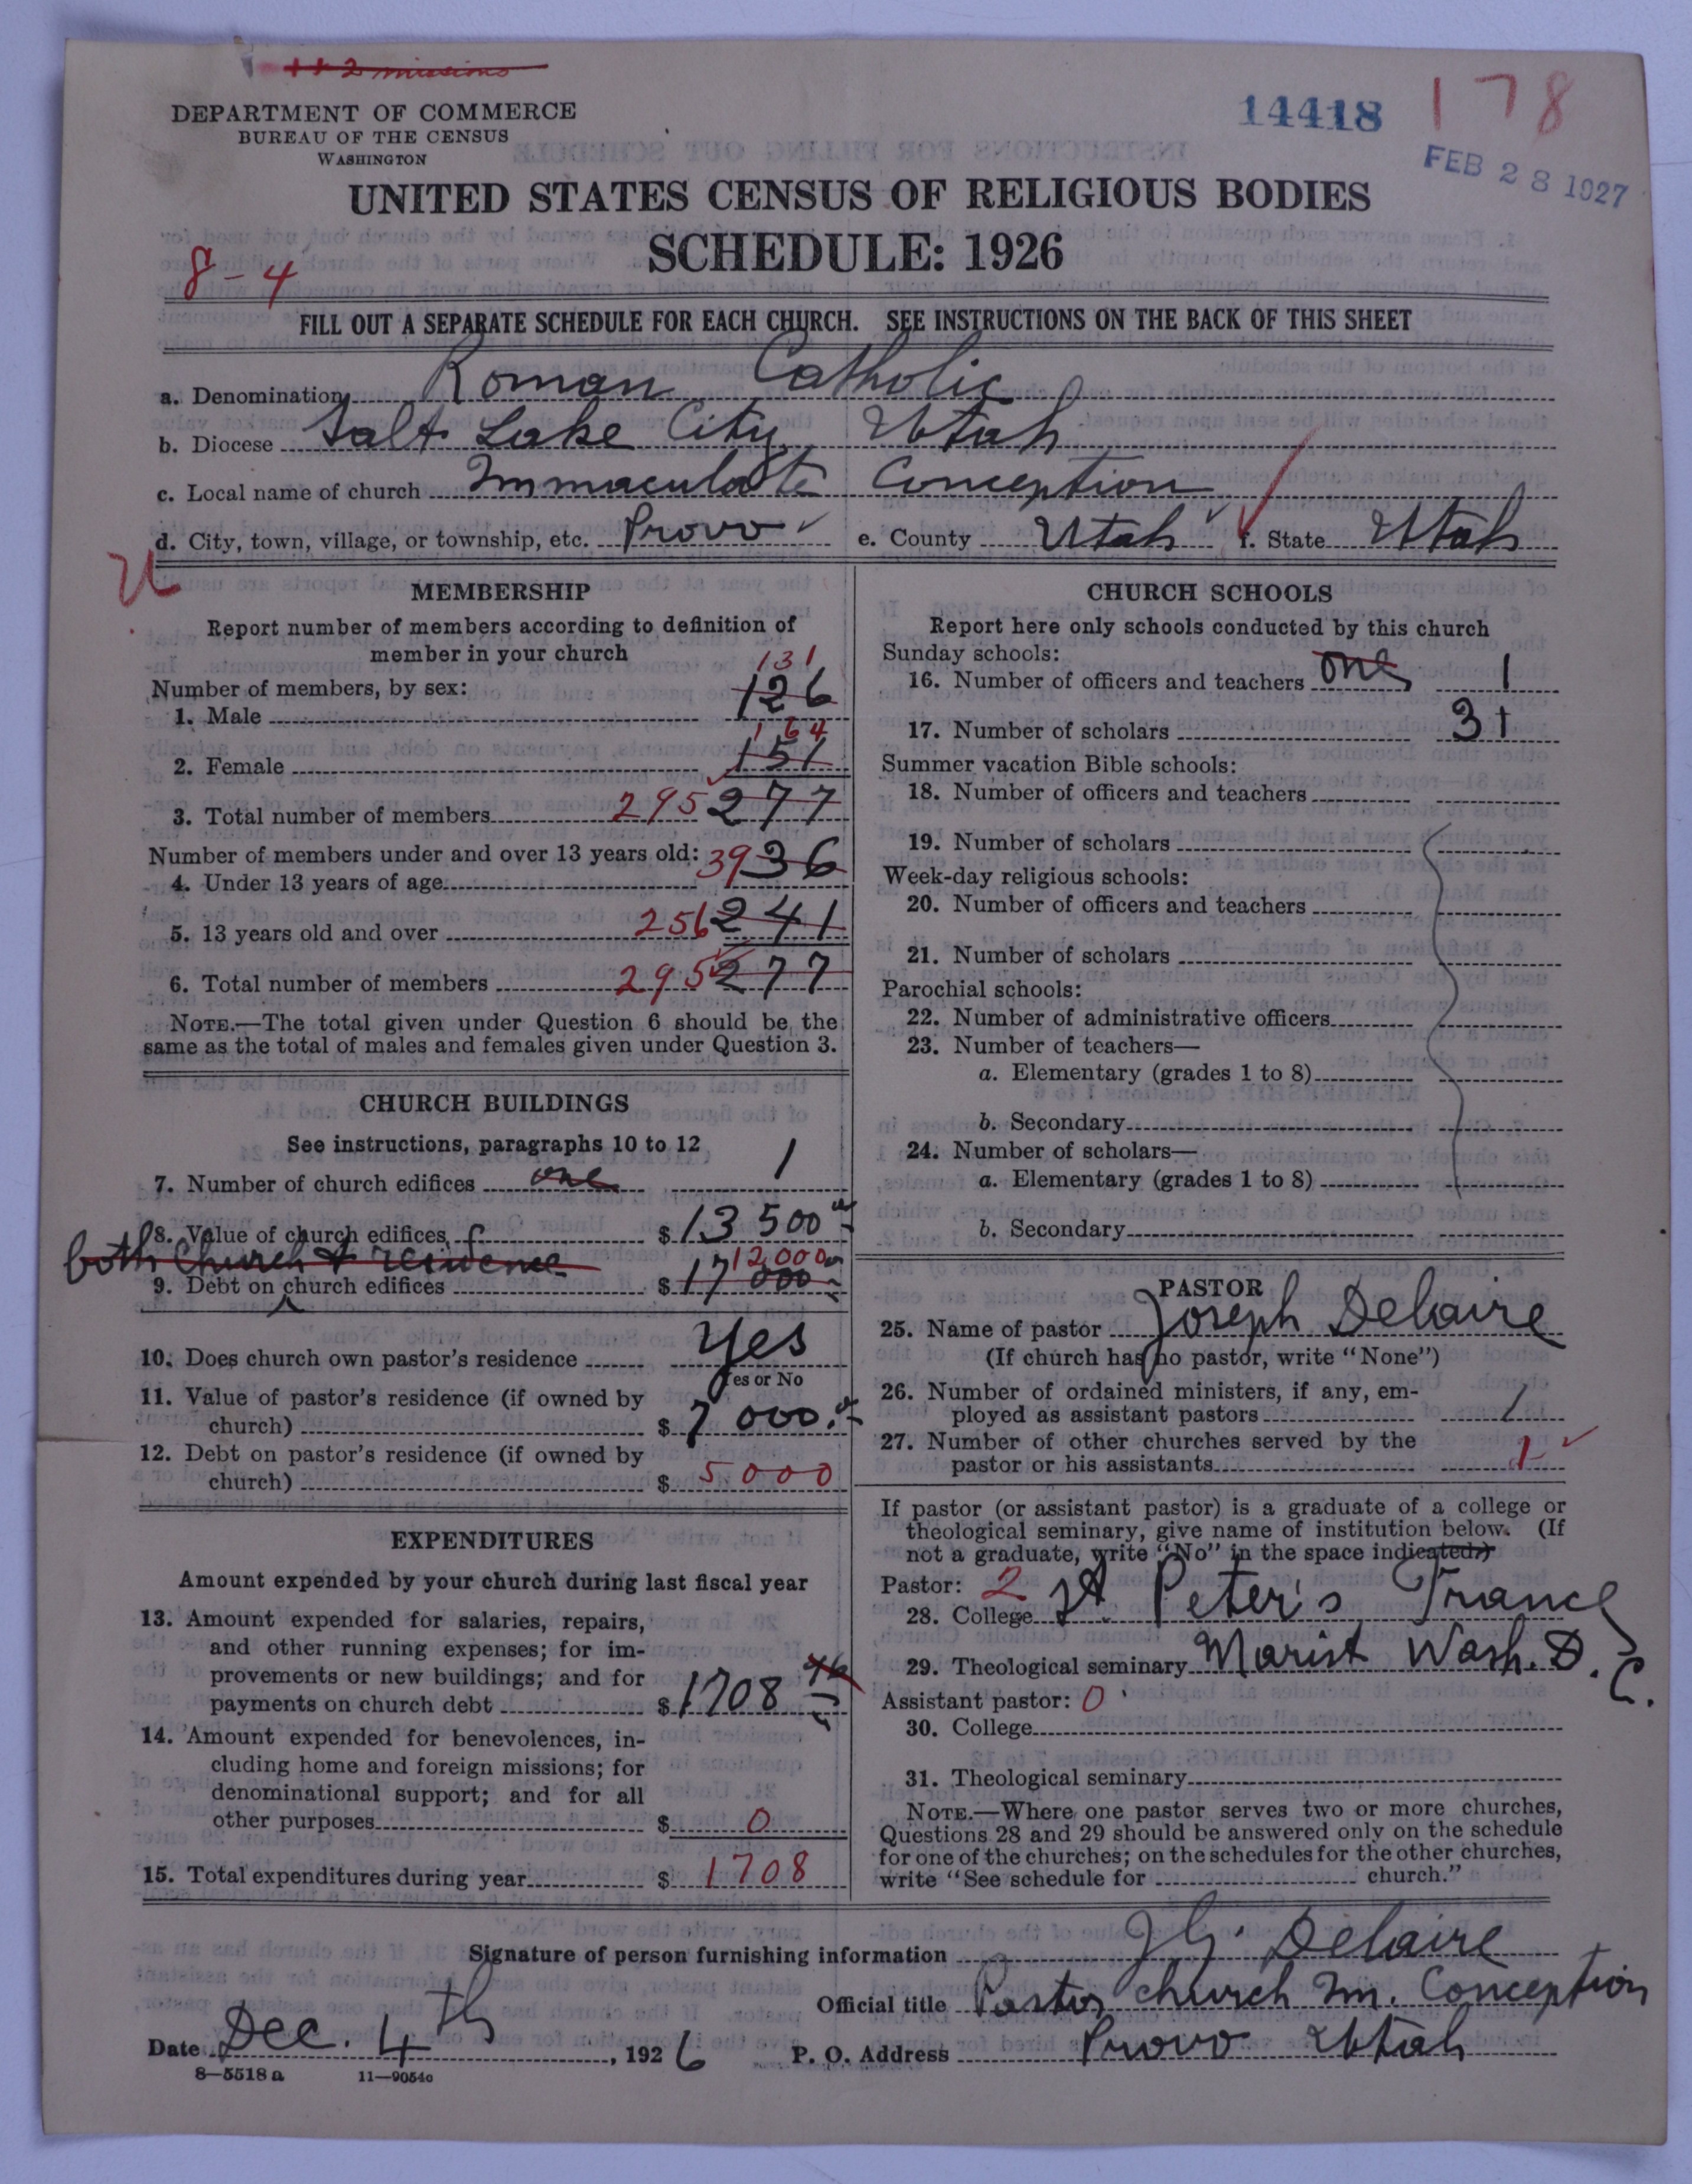 ++ 2 missions
DEPARTMENT OF COMMERCE
BUREAU OF THE CENSUS
WASHINGTON
14418
178
FEB 28 1927
UNITED STATES CENSUS OF RELIGIOUS BODIES
SCHEDULE: 1926
8-4
FILL OUT A SEPARATE SCHEDULE FOR EACH CHURCH. SEE INSTRUCTIONS ON THE BACK OF THIS SHEET
a. Denomination Roman Catholic
b. Diocese Salt Lake City Utah
c. Local name of church Immaculate Conception
d. City, town, village, or township, etc. Provo e. County Utah f. State Utah
U
MEMBERSHIP
Report number of members according to definition of
member in your church
Number of members, by sex:
131
1. Male 126
164
2. Female 151
3. Total number of members 295 277
Number of members under and over 13 years old:
4. Under 13 years of age 39 36
5. 13 years old and over 256 241
6. Total number of members 295 277
NOTE.—The total given under Question 6 should be the
same as the total of males and females given under Question 3.
CHURCH BUILDINGS
See instructions, paragraphs 10 to 12
7. Number of church edifices one 1
8. Value of church edifices $ 13 500
both Church & residence 12 000
9. Debt on church edifices $ 17 000
10. Does church own pastor's residence Yes
Yes or No
11. Value of pastor's residence (if owned by
church) $ 7 000.
12. Debt on pastor's residence (if owned by
church) $ 5000
EXPENDITURES
Amount expended by your church during last fiscal year
13. Amount expended for salaries, repairs,
and other running expenses; for im-
provements or new buildings; and for
payments on church debt $ 1708
14. Amount expended for benevolences, in-
cluding home and foreign missions; for
denominational support; and for all
other purposes $ 0
15. Total expenditures during year $ 1708
CHURCH SCHOOLS
Report here only schools conducted by this church
Sunday schools:
16. Number of officers and teachers one 1
17. Number of scholars 31
Summer vacation Bible schools:
18. Number of officers and teachers
19. Number of scholars
Week-day religious schools:
20. Number of officers and teachers
21. Number of scholars
Parochial schools:
22. Number of administrative officers
23. Number of teachers—
a. Elementary (grades 1 to 8)
b. Secondary
24. Number of scholars—
a. Elementary (grades 1 to 8)
b. Secondary
PASTOR
25. Name of pastor Joseph Delaire
(If church has no pastor, write "None")
26. Number of ordained ministers, if any, em-
ployed as assistant pastors /
27. Number of other churches served by the
pastor or his assistants 1
If pastor (or assistant pastor) is a graduate of a college or
theological seminary, give name of institution below. (If
not a graduate, write "No" in the space indicated.)
Pastor: 2
28. College St Peter's France
29. Theological seminary Marist Wash. D. C.
Assistant pastor: 0
30. College
31. Theological seminary
NOTE.—Where one pastor serves two or more churches,
Questions 28 and 29 should be answered only on the schedule
for one of the churches; on the schedules for the other churches,
write "See schedule for church."
Signature of person furnishing information J. G. Delaire
Official title Pastor church Im. Conception
Date Dec. 4th, 1926 P. O. Address Provo Utah
8—5518a 11—9054c